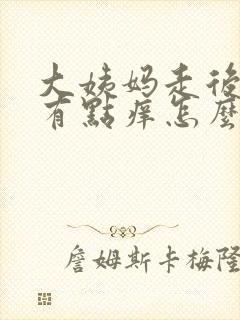 大姨妈走後
有點痒怎麼
詹姆斯卡梅隆